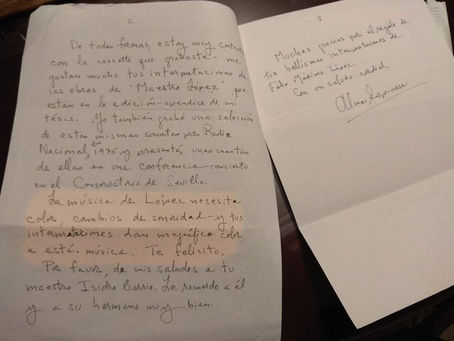 2.
De todas formas, estoy muy contenta
con la cassette que grabaste - me
gustan mucho tus interpretaciones de
las obras de "Maestro López" que
están en la edición-apéndice de mi
tésis. Yo también grabé una selección
de estas mismas sonatas por Radio
Nacional, en 1975 y presenté unas cuantas
de ellas en una conferencia-concierto
en el Conservatorio de Sevilla.
La música de López necesita
color, cambios de sonoridad - y tus
interpretaciones dan magnífico color
a esta música.. Te felicito.
Por favor, da mis saludos a tu
maestro Isidro Barrio. Le recuerdo a él
y a su hermano muy bien.
3
Muchas gracias por el regalo de
tus bellísimas interpretaciones de
Félix Máximo López.
Con un saludo cordial,